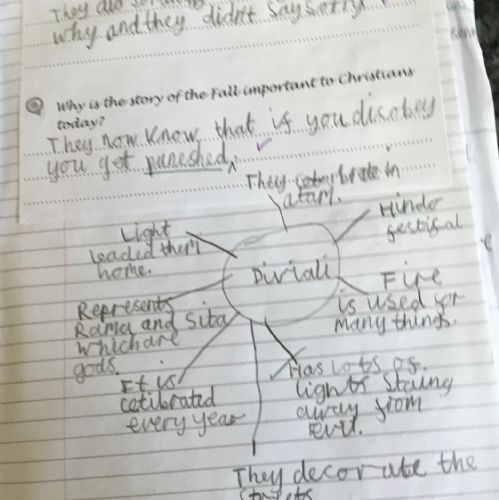 why and they didn't say sorry
Why is the story of the Fall important to Christians
today?
They now know that if you disobey
you get puneshed.
They ceterbrate in
Hindo
festifal
Light
leaded them
home.
Diviali
Fire
is used for
many things.
Represents
Rama and Sita
which are
gods.
It is
cetibrated
every year
Has lots of
lights staing
away from
evil.
They decorate the